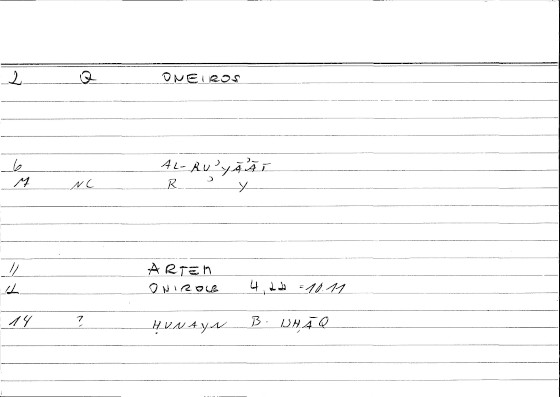 2 Q ONEIROS
6 AL-RUʾYĀʾĀT
M NC R ʾ Y
11 ARTEM
12 ONIROCR 4,22 = 10.11
14 ? ḤUNAYN B. ISḤĀQ